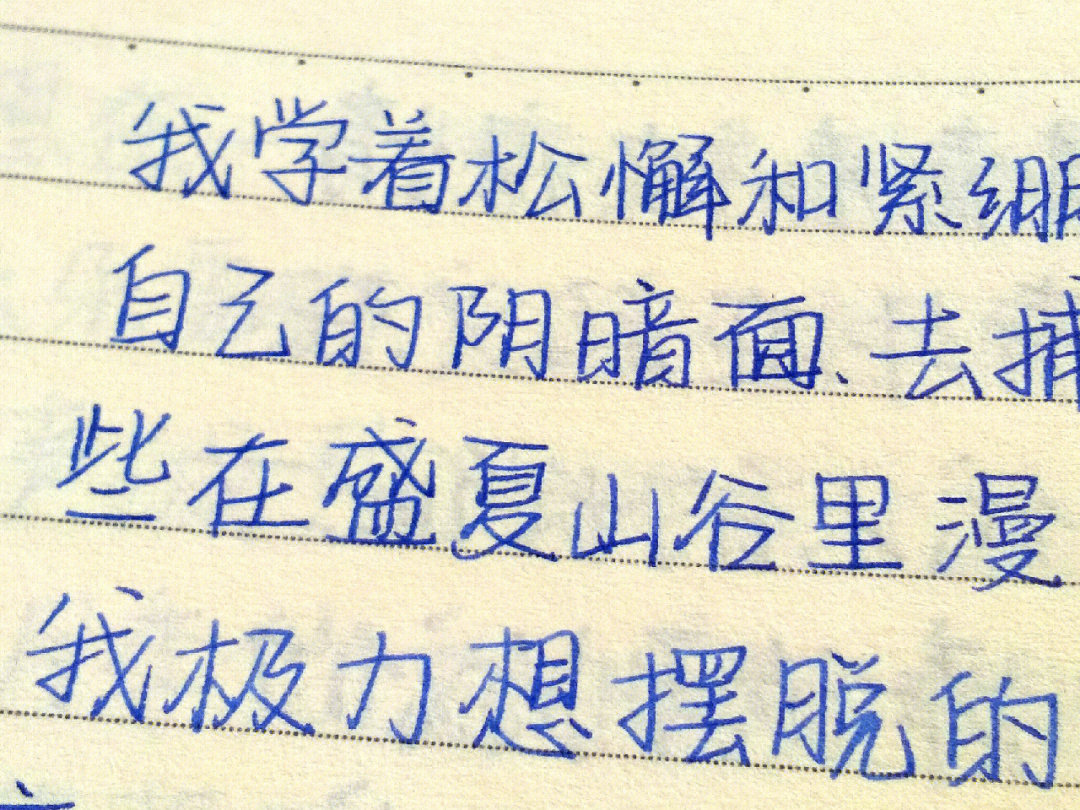 我学着松懈和紧绷
自己的阴暗面、去捕
些在盛夏山谷里漫
我极力想摆脱的